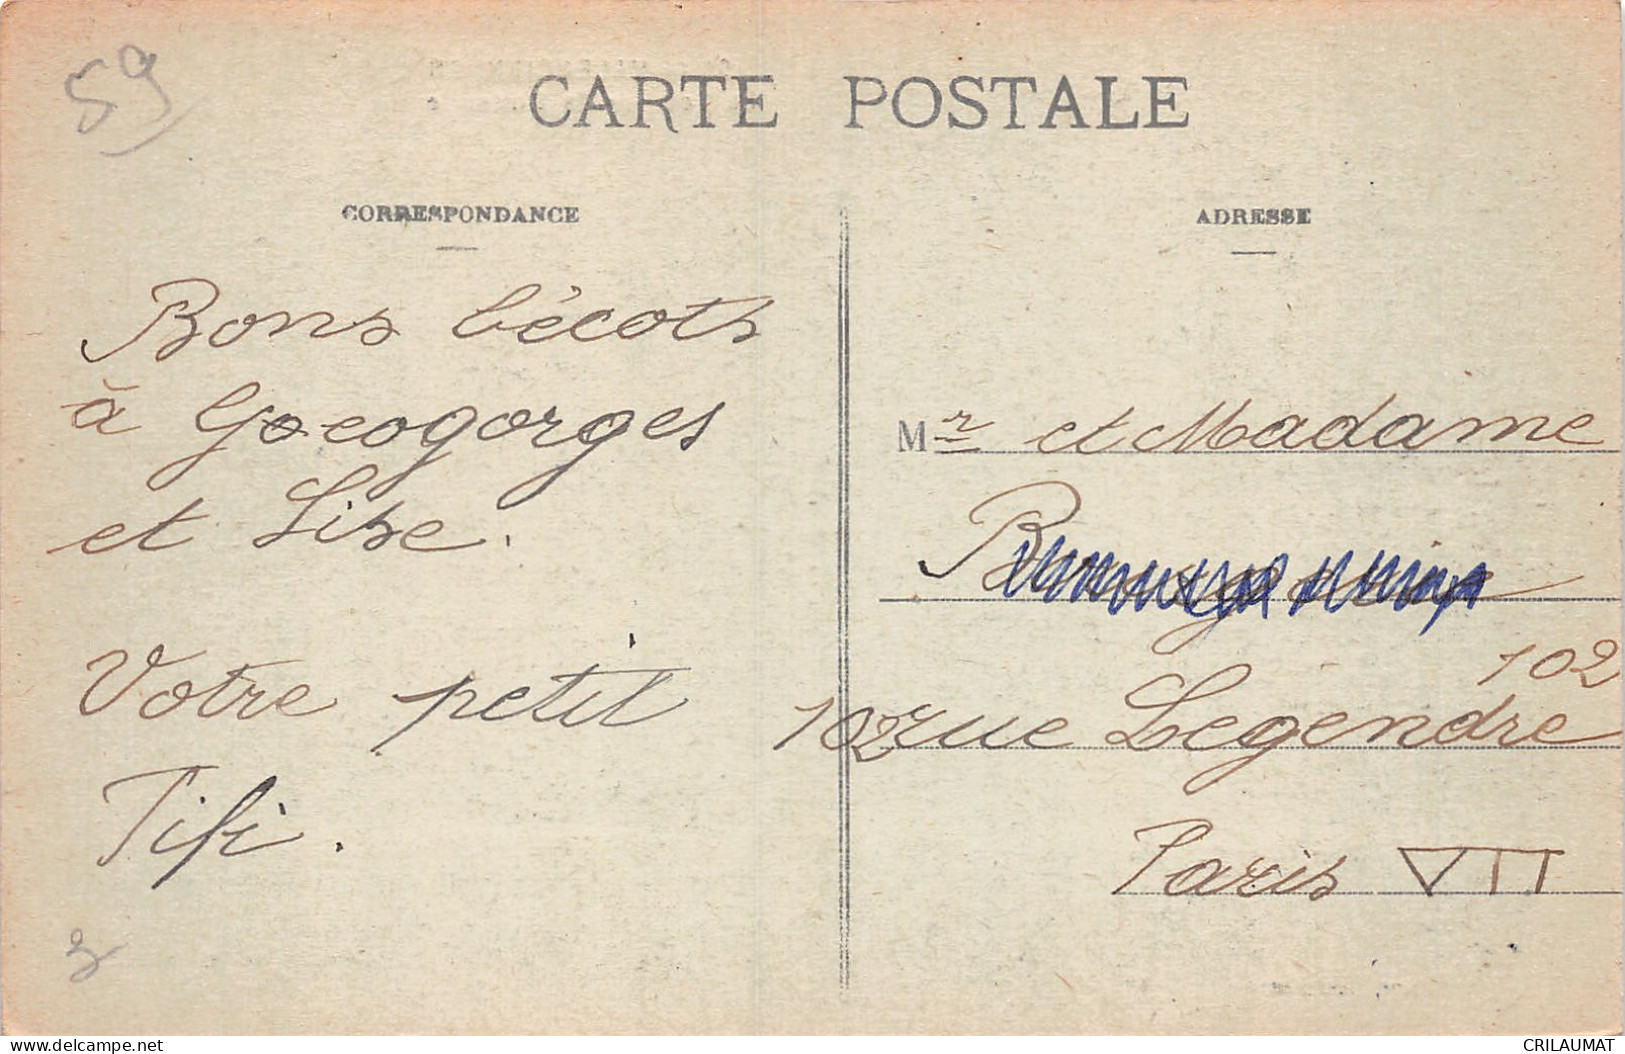 59
CARTE POSTALE
CORRESPONDANCE
Bons bécots
à Gogorges
et Lise.
Votre petit
Tifi.
3
ADRESSE
Mr et Madame
102
102 rue Legendre
Paris VII
delcampe.net
CRILAUMAT